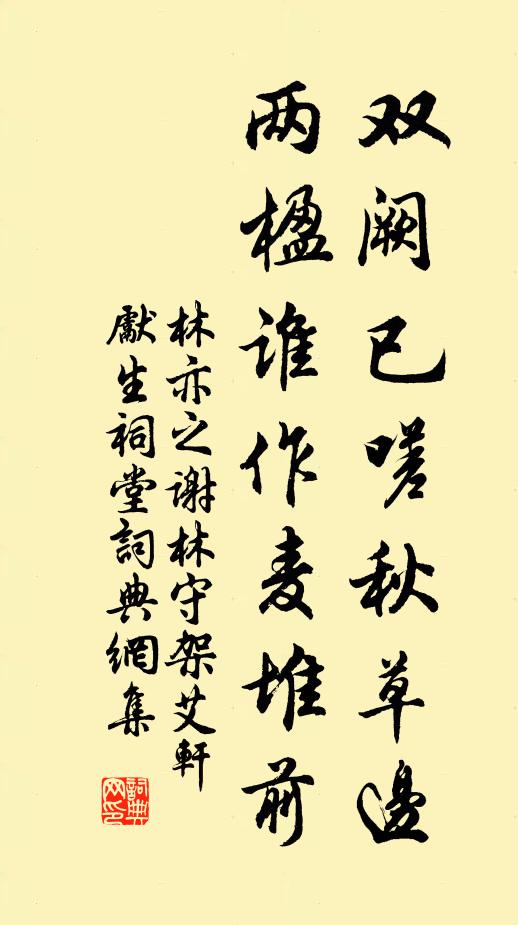 双阙已嗟秋草邊
两楹谁作麦堆前
林亦之谢林守架艾軒
獻生祠堂詞典網集
詞典
网印